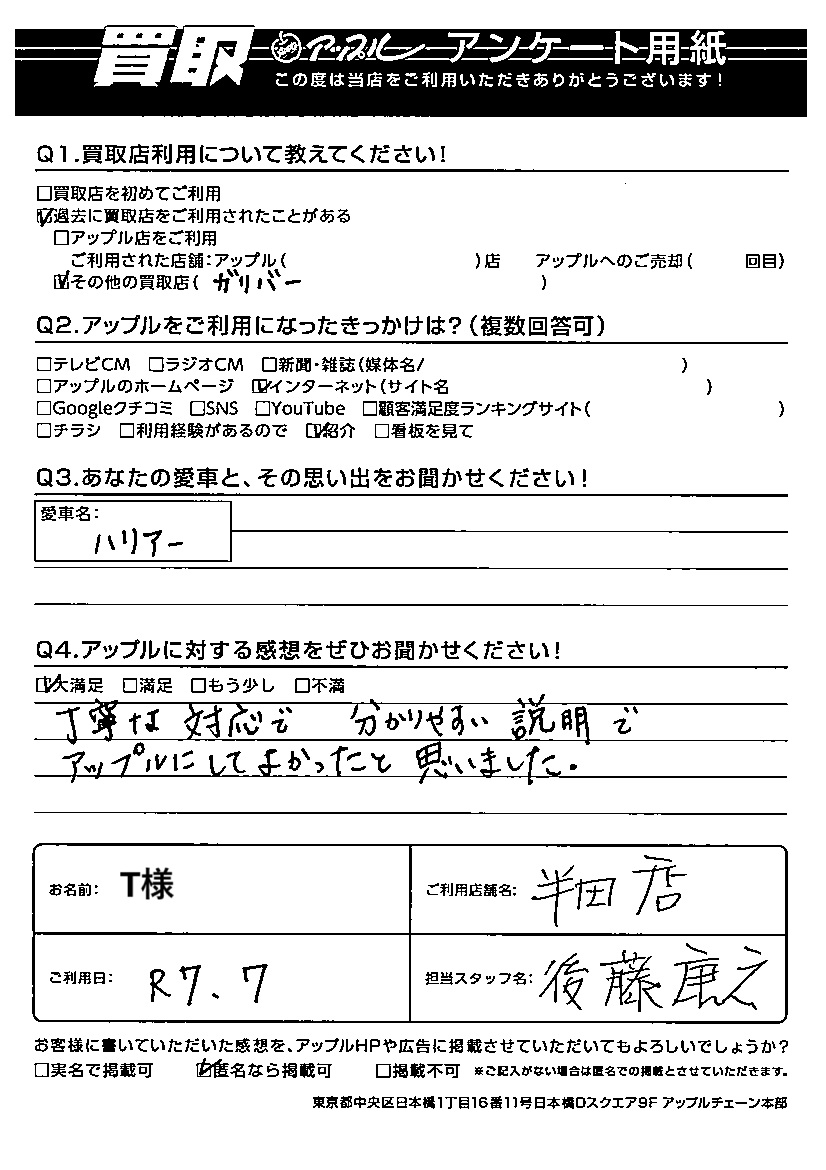 買取 アップル アンケート用紙
この度は当店をご利用いただきありがとうございます!
Q1.買取店利用について教えてください!
□買取店を初めてご利用
☑過去に買取店をご利用されたことがある
□アップル店をご利用
ご利用された店舗:アップル( )店 アップルへのご売却( 回目)
☑その他の買取店( ガリバー )
Q2.アップルをご利用になったきっかけは?(複数回答可)
□テレビCM □ラジオCM □新聞・雑誌(媒体名/ )
□アップルのホームページ ☑インターネット(サイト名 )
□Googleクチコミ □SNS □YouTube □顧客満足度ランキングサイト( )
□チラシ □利用経験があるので ☑紹介 □看板を見て
Q3.あなたの愛車と、その思い出をお聞かせください!
愛車名:
ハリアー
Q4.アップルに対する感想をぜひお聞かせください!
☑大満足 □満足 □もう少し □不満
丁寧な対応で 分かりやすい説明で
アップルにしてよかったと思いました.
お名前: T様 ご利用店舗名: 半田店
ご利用日: R7.7 担当スタッフ名: 後藤康之
お客様に書いていただいた感想を、アップルHPや広告に掲載させていただいてもよろしいでしょうか?
□実名で掲載可 ☑匿名なら掲載可 □掲載不可 ※ご記入がない場合は匿名での掲載とさせていただきます。
東京都中央区日本橋1丁目16番11号日本橋Dスクエア9F アップルチェーン本部